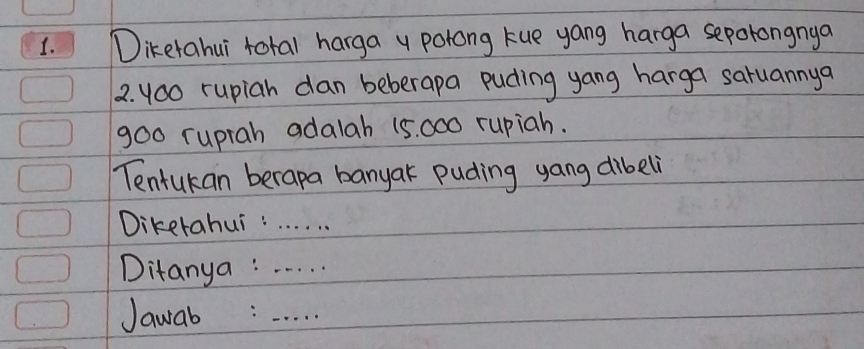 1. Diketahui total harga 4 potong kue yang harga sepotongnya
2.400 rupiah dan beberapa puding yang harga satuannya
900 rupiah adalah 15.000 rupiah.
Tentukan berapa banyak puding yang dibeli
Diketahui : ......
Ditanya : .....
Jawab : .....